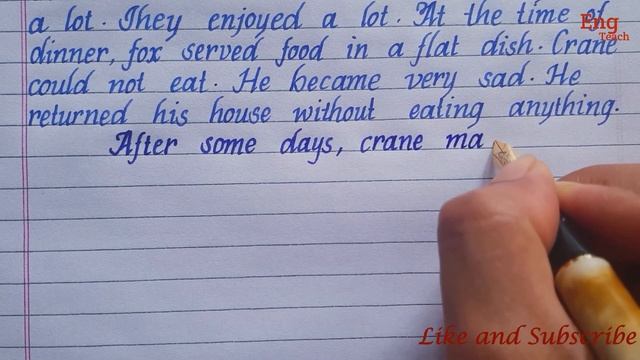 a lot. They enjoyed a lot. At the time of
dinner, fox served food in a flat dish. Crane
could not eat. He became very sad. He
returned his house without eating anything.
After some days, crane ma
Eng
Teach
Like and Subscribe